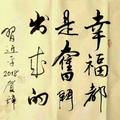 幸福都
是奮鬥
出来的
習近平
2018